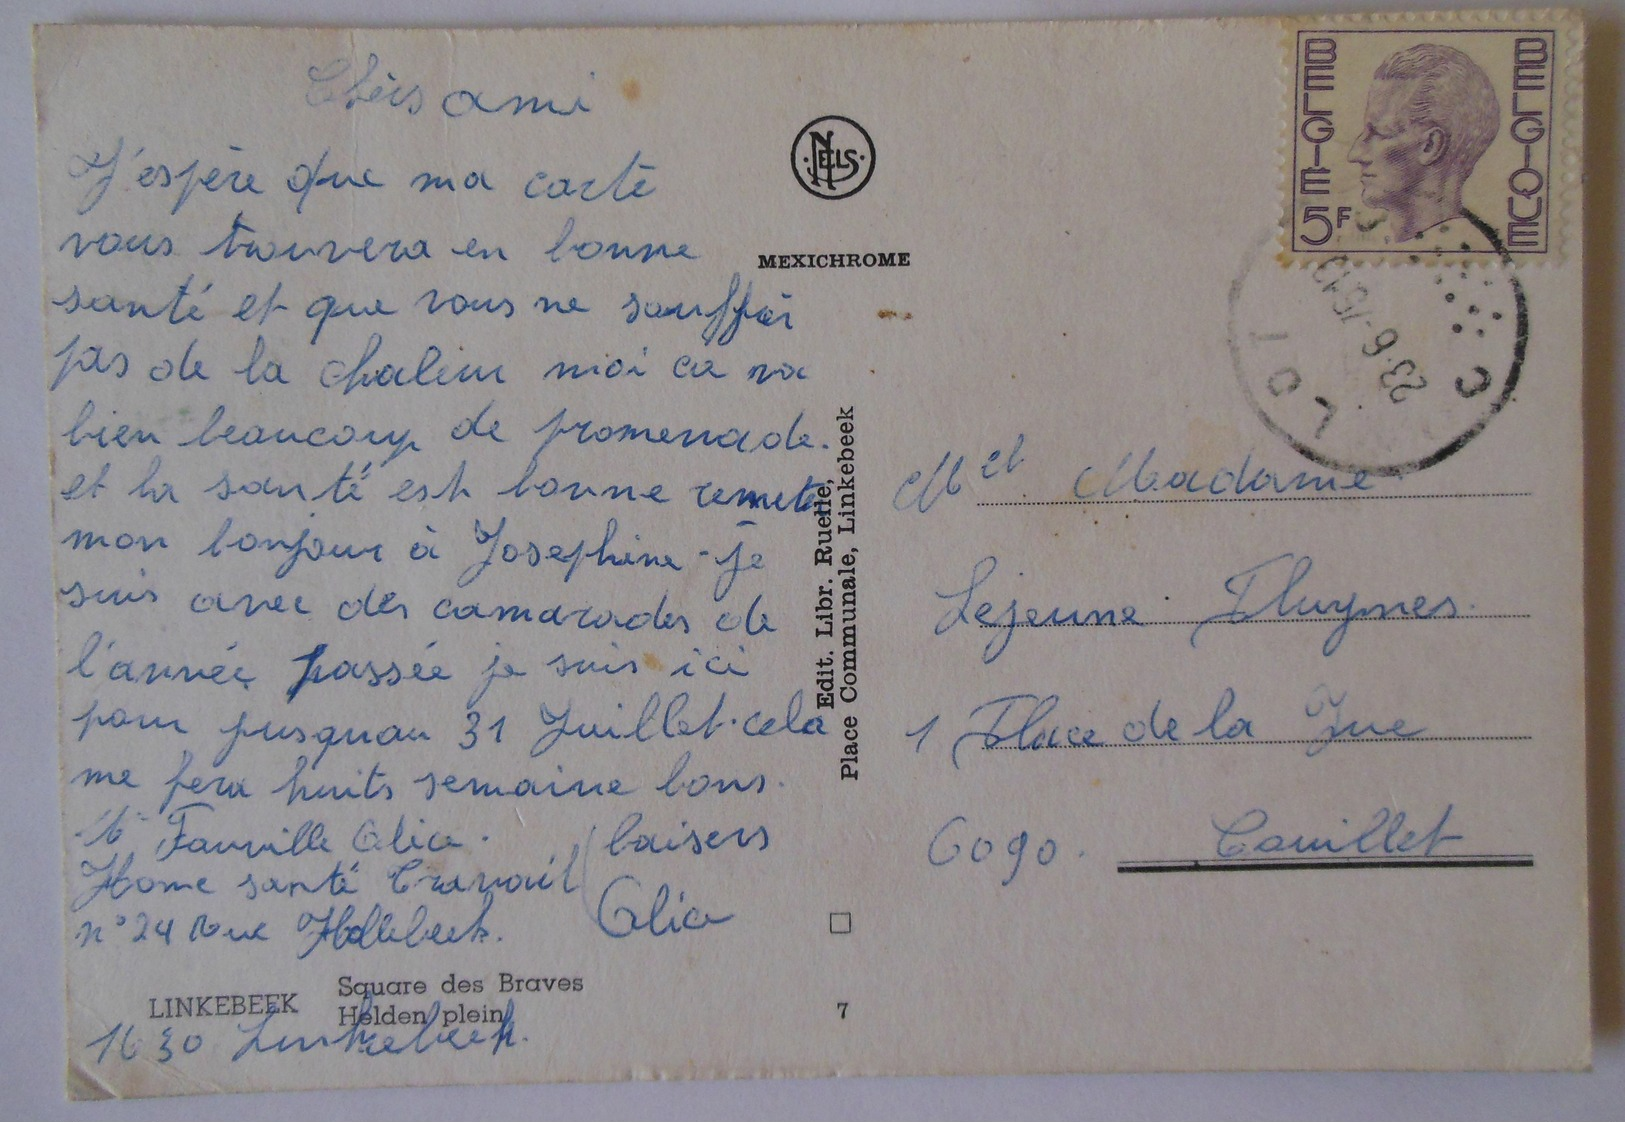 Chèrs ami
J'espère que ma carte
vous trouvera en bonne
santé et que vous ne souffrer
pas de la chaleur moi ca va
bien beaucoup de promenade.
et la santé est bonne remete
mon bonjour à Josephine - je
suis avec des camarades de
l'année passée je suis ici
pour jusquau 31 Juillet. cela
me fera huits semaine bons.
Fauville Alice.
Home santé Travail
n° 24 Rue Hollebeek.
baisers
Alice
LINKEBEEK
Square des Braves
Helden plein
1630 Linkebeek.
NELS
MEXICHROME
Edit. Libr. Ruelle,
Place Communale, Linkebeek
7
BELGIE
BELGIQUE
5F
23-6-
Mr et Madame
Lejeune Pluymes.
1 Place de la
6090. Couillet